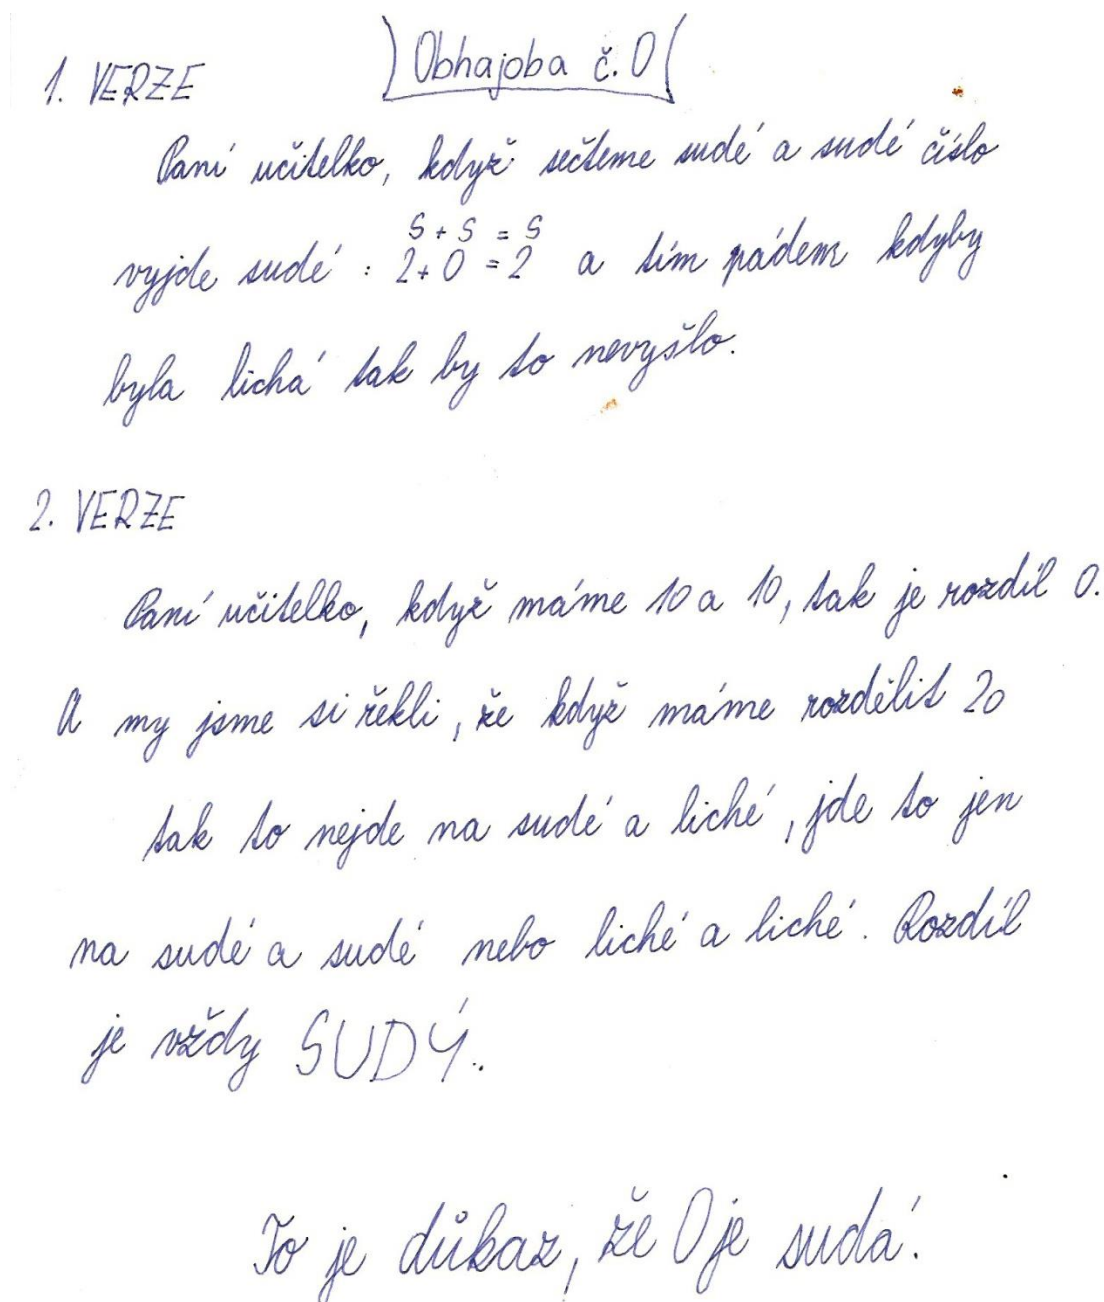 Obhajoba č. 0
1. VERZE
Paní učitelko, když sečteme sudé a sudé číslo
S + S = S
vyjde sudé : 2 + 0 = 2 a tím pádem kdyby
byla lichá tak by to nevyšlo.
2. VERZE
Paní učitelko, když máme 10 a 10, tak je rozdíl 0.
A my jsme si řekli, že když máme rozdělit 20
tak to nejde na sudé a liché, jde to jen
na sudé a sudé nebo liché a liché. Rozdíl
je vždy SUDÝ.
To je důkaz, že 0 je sudá.